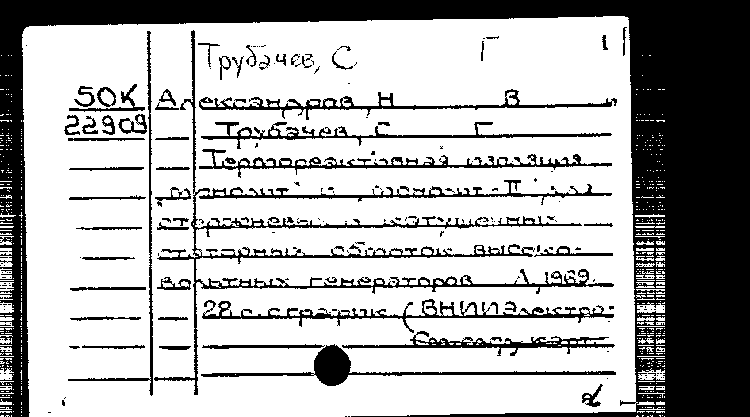 Трубачев, С Г 1
50К Александров, Н В
22909 Трубачев, С Г
Термореактивная изоляция
"монолит" и "монолит-II" для
стержневых и катушечных
статорных обмоток высоко-
вольтных генераторов Л, 1969.
28 с. с график (ВНИИЭлектро-